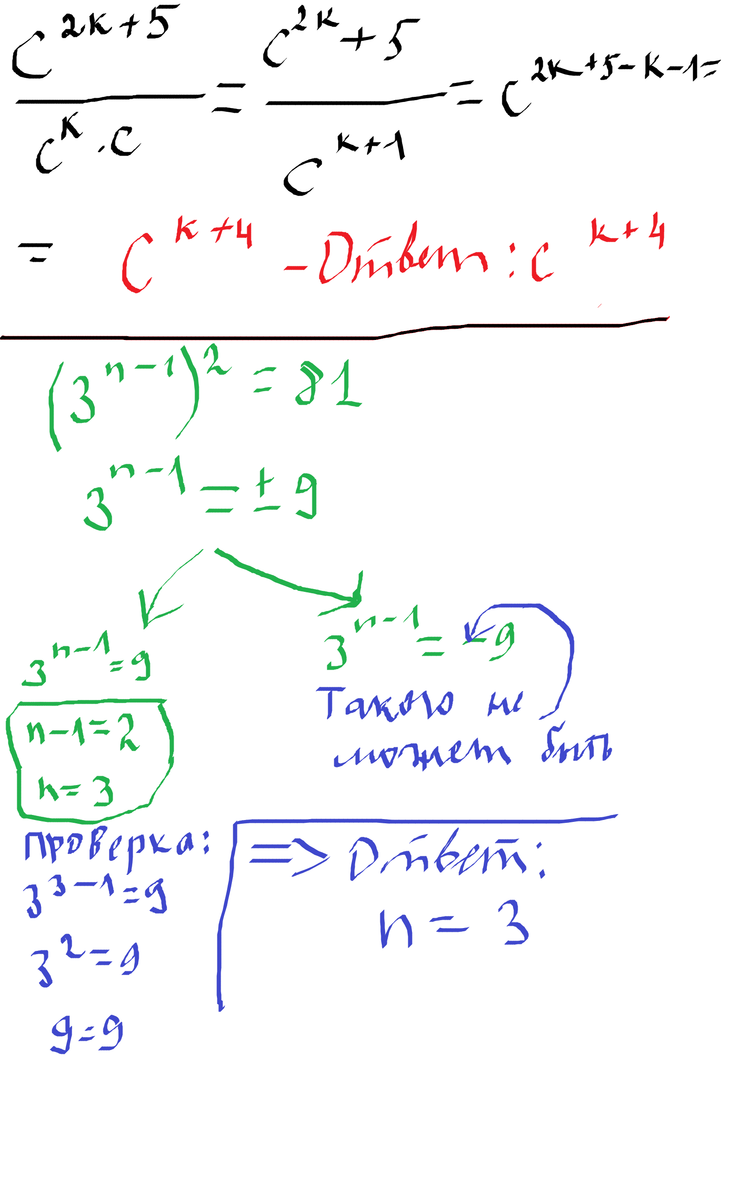 c^{2k+5} / (c^k · c) = (c^{2k} + 5) / c^{k+1} = c^{2k+5-k-1} =
= c^{k+4} - Ответ: c^{k+4}
(3^{n-1})^2 = 81
3^{n-1} = ± 9
3^{n-1} = 9
n-1=2
n=3
3^{n-1} = -9
Такого не
может быть
Проверка:
3^{3-1}=9
3^2=9
9=9
=> Ответ:
n = 3